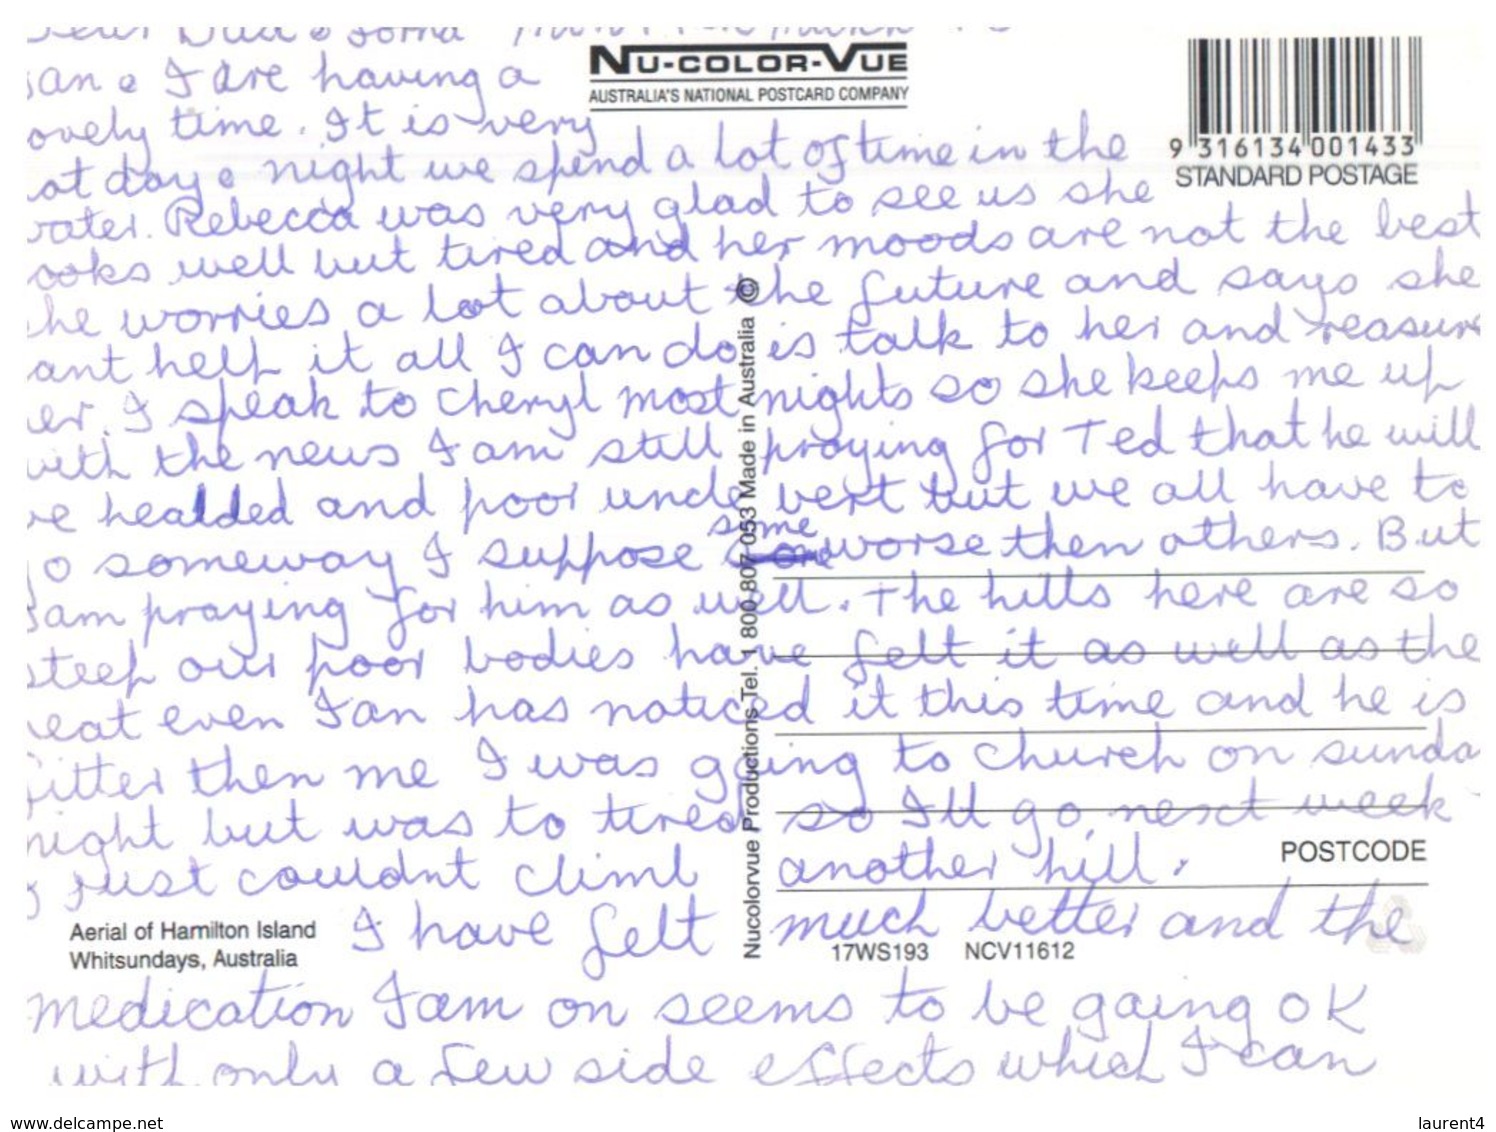 Dear Dad &
NU-COLOR-VUE
AUSTRALIA'S NATIONAL POSTCARD COMPANY
9 316134 001433
STANDARD POSTAGE
an & I are having a
ovely time. It is very
ot day & night we spend a lot of time in the
vater. Rebecca was very glad to see us she
ooks well but tired and her moods are not the best
he worries a lot about the future and says she
ant help it all I can do is talk to her and reasure
er. I speak to Cheryl most nights so she keeps me up
with the news I am still praying for Ted that he will
be healded and poor uncle bert but we all have to
go someway I suppose some worse then others. But
I am praying for him as well. The hills here are so
steep our poor bodies have felt it as well as the
heat even Ian has noticed it this time and he is
fitter then me I was going to church on sunda
night but was to tired so I'll go next week
I just couldnt climb another hill.
I have felt much better and the
medication I am on seems to be going OK
with only a few side effects which I can
Nucolorvue Productions-Tel. 1 800 807 053 Made in Australia ©
POSTCODE
Aerial of Hamilton Island
Whitsundays, Australia
17WS193 NCV11612
www.delcampe.net
laurent4